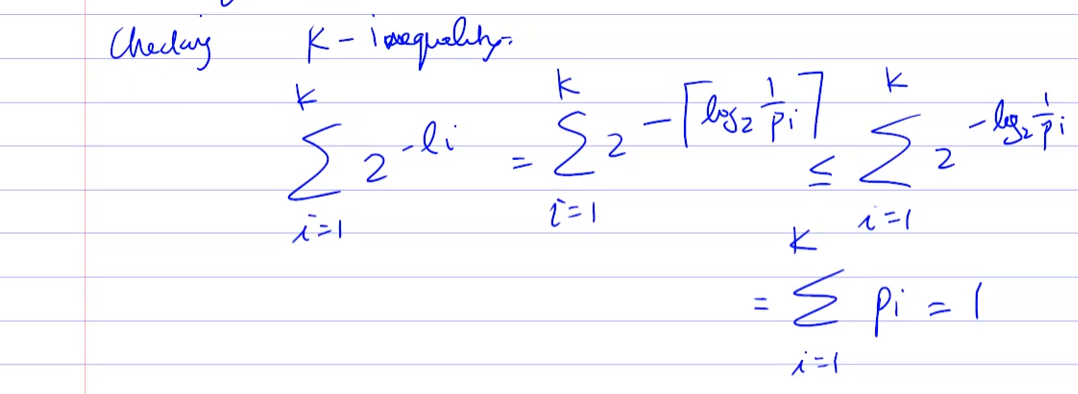 Checking K - inequality.
$\sum_{i=1}^{K} 2^{-l_i} = \sum_{i=1}^{K} 2^{-\lceil \log_2 \frac{1}{p_i} \rceil} \leq \sum_{i=1}^{K} 2^{-\log_2 \frac{1}{p_i}}$
$= \sum_{i=1}^{K} p_i = 1$